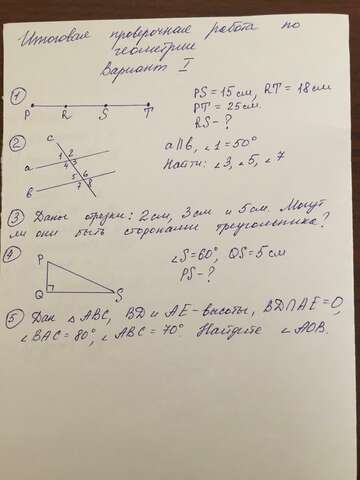 Итоговая проверочная работа по
геометрии
Вариант I
1 PS = 15 см, RT = 18 см
P R S T PT = 25 см.
RS - ?
2 c
a 1 2 4 3 a∥b, ∠1 = 50°
b 5 6 7 8 Найти: ∠3, ∠5, ∠7
3 Даны отрезки: 2 см, 3 см и 5 см. Могут
ли они быть сторонами треугольника?
4 P ∠S = 60°, QS = 5 см
PS - ?
Q S
5 Дан △ABC, BD и AE - высоты, BD∩AE = O,
∠BAC = 80°, ∠ABC = 70°. Найдите ∠AOB.